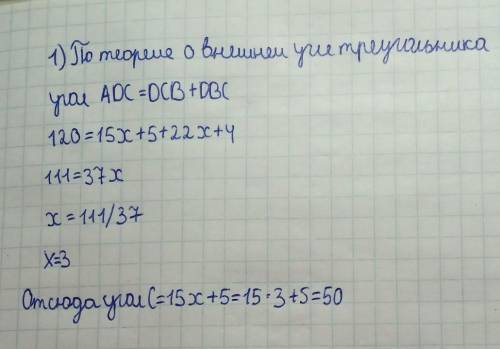 1) По теореме о внешнем угле треугольника
угол ADC = DCB + DBC
120 = 15x + 5 + 22x + 4
111 = 37x
x = 111/37
x = 3
Отсюда угол C = 15x + 5 = 15 · 3 + 5 = 50